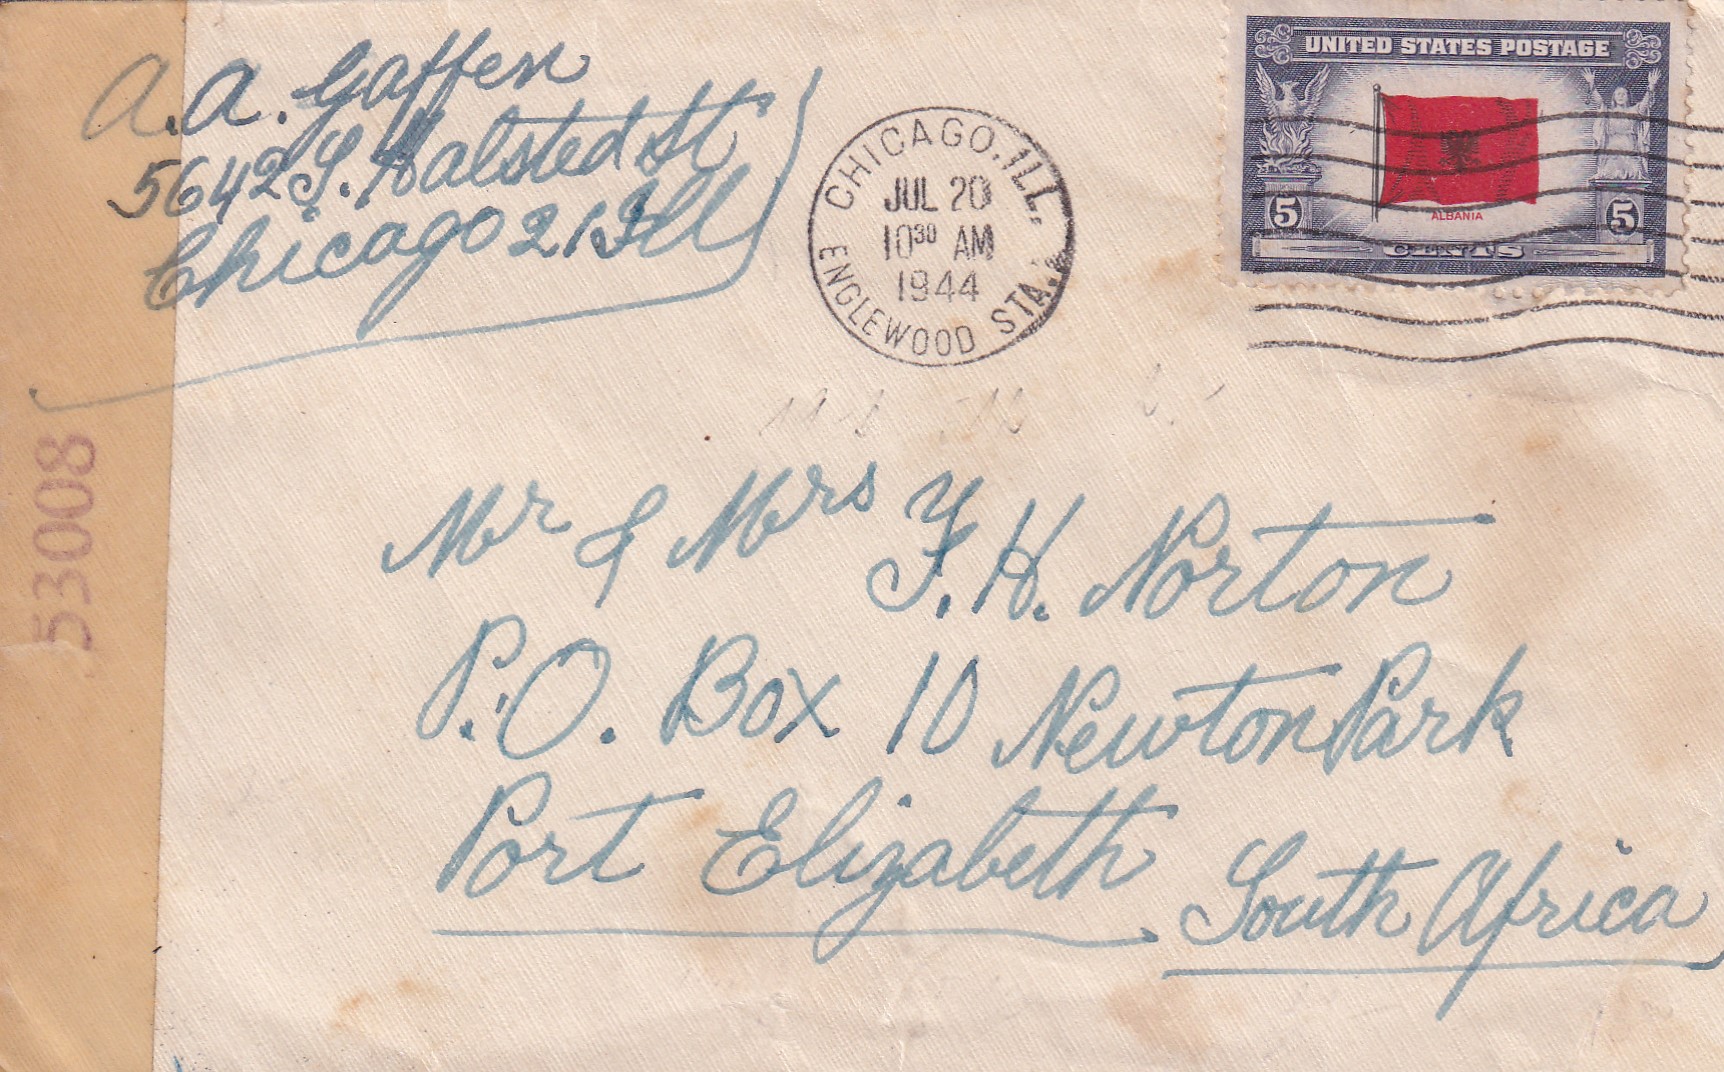 A. A. Gaffen
5642 S. Halsted St
Chicago 21 Ill
CHICAGO, ILL.
JUL 20
10 30 AM
1944
ENGLEWOOD STA.
UNITED STATES POSTAGE
ALBANIA
5 5
CENTS
53008
Mr & Mrs F. H. Norton
P.O. Box 10 Newton Park
Port Elizabeth South Africa